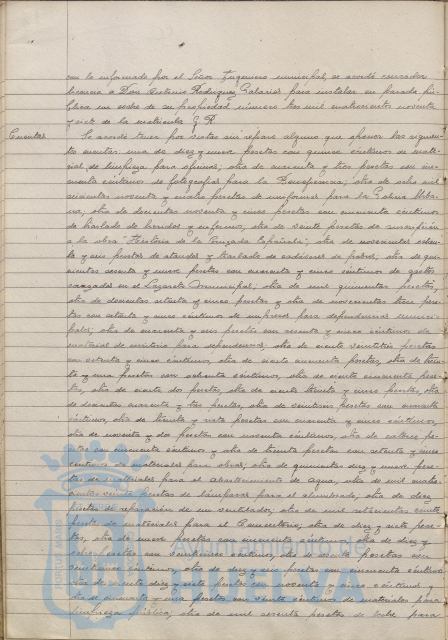 con lo informado por el Señor Ingeniero municipal, se acordó conceder
licencia a Don Antonio Rodríguez Palacios para instalar en parada pú-
blica un coche de su propiedad número tres mil cuatrocientos noventa
y siete de la matrícula
Cuentas Se acordó traer por vistas sin reparo alguno que ahonar las siguien-
tes cuentas: una de diez y nueve pesetas con quince céntimos de mate-
rial de limpieza para oficinas; otra de cuarenta y tres pesetas con cin-
cuenta céntimos de fotografías para la Beneficencia; otra de ocho mil
noventa y cuatro pesetas de uniformes para la Guardia Urba-
na, otra de doscientas noventa y cinco pesetas con cincuenta céntimos
de traslado de heridos y enfermos, otra de veinte pesetas de suscripción
a la obra "Historia de la Cruzada Española", otra de novecientas ochen-
ta y seis pesetas de ataudes y traslado de cadáveres de pobres, otra de qui-
nientas sesenta y nueve pesetas con cuarenta y cinco céntimos de gastos
en el Lazareto municipal; otra de mil quinientas pesetas,
otra de doscientas setenta y cinco pesetas y otra de novecientas trece pese-
tas con setenta y cinco céntimos de impresos para dependencias munici-
pales; otra de cuarenta y seis pesetas con sesenta y cinco céntimos de
material de escritorio para dependencias; otra de ciento veintitrés pesetas
con setenta y cinco céntimos, otra de ciento cuarenta pesetas, otra de trein-
ta y una pesetas con ochenta céntimos, otra de ciento cincuenta pese-
tas, otra de ciento dos pesetas, otra de ciento treinta y cinco pesetas, otra
de doscientas cuarenta y tres pesetas, otra de veintiseis pesetas con cuarenta
céntimos, otra de treinta y siete pesetas con cuarenta y cinco céntimos,
otra de noventa y dos pesetas con noventa céntimos, otra de catorce pe-
setas con cincuenta céntimos y otra de treinta pesetas con setenta y cinco
céntimos de materiales para obras; otra de quinientas diez y nueve pese-
tas de materiales para el abastecimiento de agua, otra de mil
veinte pesetas de lámparas para el alumbrado, otra de diez
pesetas de reparación de un ventilador; otra de mil setecientas
pesetas de materiales para el Consultorio; otra de diez y siete pese-
tas, otra de nueve pesetas con cincuenta céntimos, otra de diez y
ocho pesetas con veinticinco céntimos, otra de pesetas con
veinticinco céntimos, otra de diez y seis pesetas con cincuenta céntimos
otra de ciento diez y siete pesetas con noventa y cinco céntimos y
otra de cuarenta y una pesetas con veinte céntimos de materiales para
limpieza pública, otra de mil sesenta pesetas de para